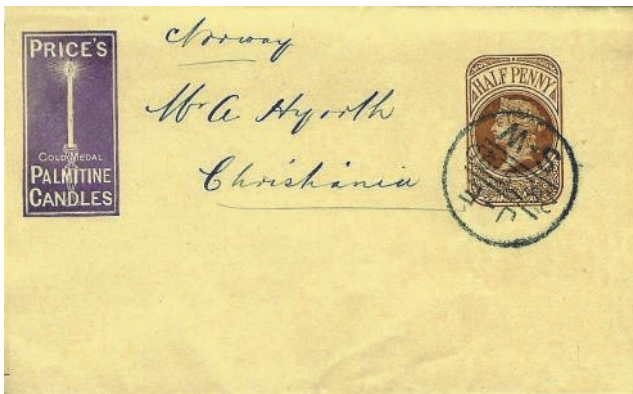 PRICE'S
GOLD MEDAL
PALMITINE
CANDLES
Norway
Mr A Hyorth
Christiania
HALF PENNY